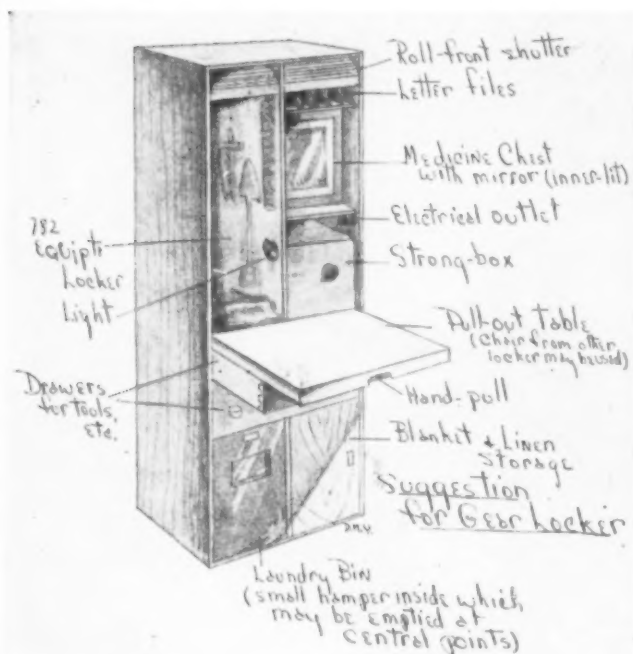 Roll-front shutter
Letter files
Medicine Chest
with mirror (inner-lit)
Electrical outlet
Strong-box
782
Equipt.
Locker
Light
Pull-out table
(Chair from other
locker may be used)
Hand-pull
Drawers
for tools,
etc.
Blanket & Linen
Storage
Suggestion
for Gear Locker
Laundry Bin
(small hamper inside which
may be emptied at
central points)